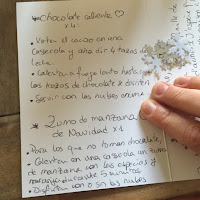 * Chocolate caliente ♡
x4.
• Vierta el cacao en una
casserola y añadir 4 tazas de
leche.
• Calentar a fuego lento hasta
los trozos de chocolate se
• Servir con las nubes encima
* Zumo de manzana
de Navidad x1
Para los que no toman chocolate,
• Calentar en una casserola un zumo
de manzana con las especias y
naranja durante 5 minutos
• Disfrutar con o sin las nubes